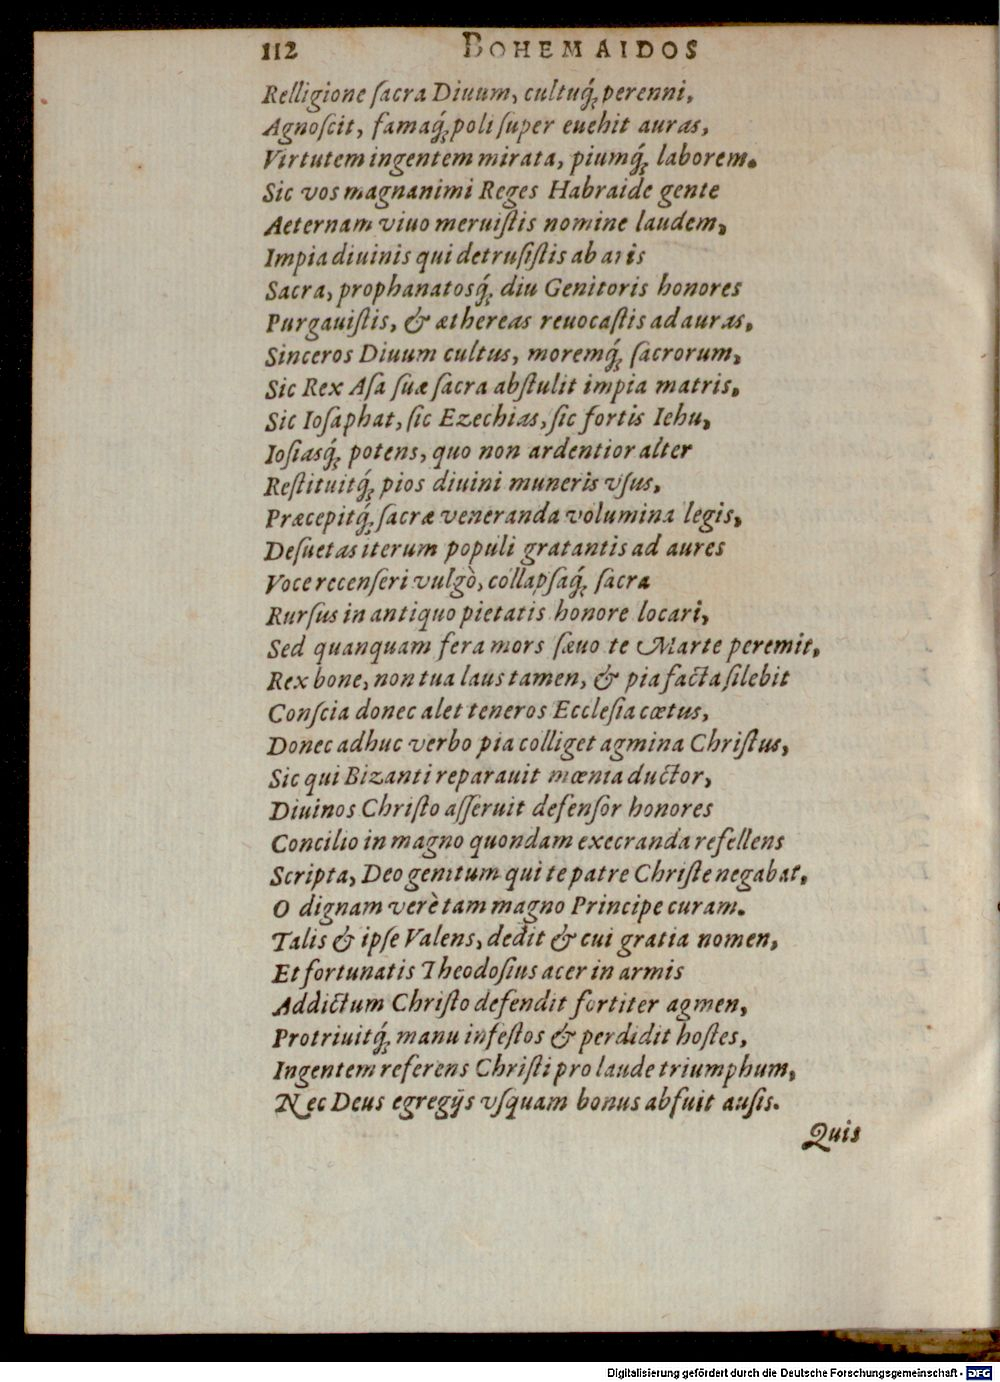 112 BOHEMAIDOS
Relligione ſacra Diuum, cultuq́ꝫ perenni,
Agnoſcit, famaq́ꝫ poli ſuper euehit auras,
Virtutem ingentem mirata, piumq́ꝫ laborem.
Sic vos magnanimi Reges Habraide gente
Aeternam viuo meruiſtis nomine laudem,
Impia diuinis qui detruſiſtis ab aris
Sacra, prophanatosq́ꝫ diu Genitoris honores
Purgauiſtis, & æthereas reuocaſtis ad auras,
Sinceros Diuum cultus, moremq́ꝫ ſacrorum,
Sic Rex Aſa ſuæ ſacra abſtulit impia matris,
Sic Ioſaphat, ſic Ezechias, ſic fortis Iehu,
Ioſiasq́ꝫ potens, quo non ardentior alter
Reſtituitq́ꝫ pios diuini muneris vſus,
Præcepitq́ꝫ ſacræ veneranda volumina legis,
Deſuetas iterum populi gratantis ad aures
Voce recenſeri vulgò, collapſaq́ꝫ ſacra
Rurſus in antiquo pietatis honore locari,
Sed quanquam fera mors ſæuo te Marte peremit,
Rex bone, non tua laus tamen, & pia facta ſilebit
Conſcia donec alet teneros Eccleſia cœtus,
Donec adhuc verbo pia colliget agmina Chriſtus,
Sic qui Bizanti reparauit mœnia ductor,
Diuinos Chriſto aſſeruit defenſor honores
Concilio in magno quondam execranda refellens
Scripta, Deo genitum qui te patre Chriſte negabat,
O dignam verè tam magno Principe curam.
Talis & ipſe Valens, dedit & cui gratia nomen,
Et fortunatis Theodoſius acer in armis
Addictum Chriſto defendit fortiter agmen,
Protriuitq́ꝫ manu infeſtos & perdidit hoſtes,
Ingentem referens Chriſti pro laude triumphum,
Nec Deus egregijs vſquam bonus abfuit auſis.
Quis
Digitalisierung gefördert durch die Deutsche Forschungsgemeinschaft - DFG